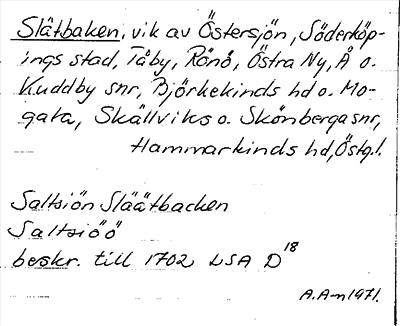 Slätbaken, vik av Östersjön, Söderköp-
ings stad, Tåby, Rönö, Östra Ny, Å o.
Kuddby snr, Björkekinds hd o. Mo-
gata, Skällviks o. Skönberga snr,
Hammarkinds hd, Östg.l.
Saltsiön Släätbacken
Saltsiöö
beskr. till 1702 LSA D 18
A.A-n 1971.